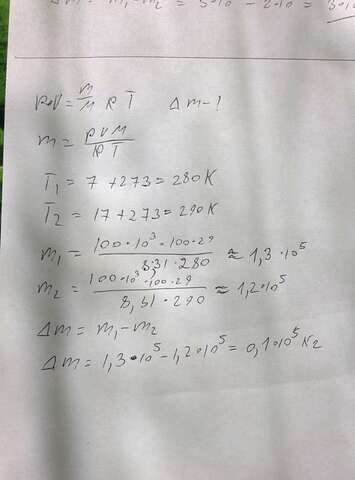 Δm = m₁-m₂ = 3·10 - 2·10 = 3·10
p·V = m/M R T Δm-?
m = pVM/RT
T₁ = 7+273=280K
T₂ = 17+273=290K
m₁ = 100·10³·100·29/8,31·280 ≈ 1,3·10⁵
m₂ = 100·10³·100·29/8,31·290 ≈ 1,2·10⁵
Δm = m₁-m₂
Δm = 1,3·10⁵-1,2·10⁵= 0,1·10⁵кг